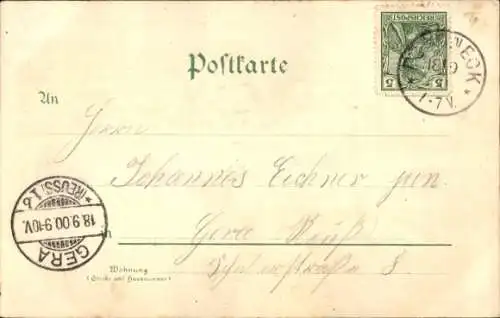 5 REICHSPOST 5
NECK
1-7V.
Postkarte
An
Herrn
Johannes Eichner jun.
in Gera Reuß
Schülerstraße 8
Wohnung
(Straße und Hausnummer)
GERA
18.9.00.9-10V.
* (REUSS) 1 b *